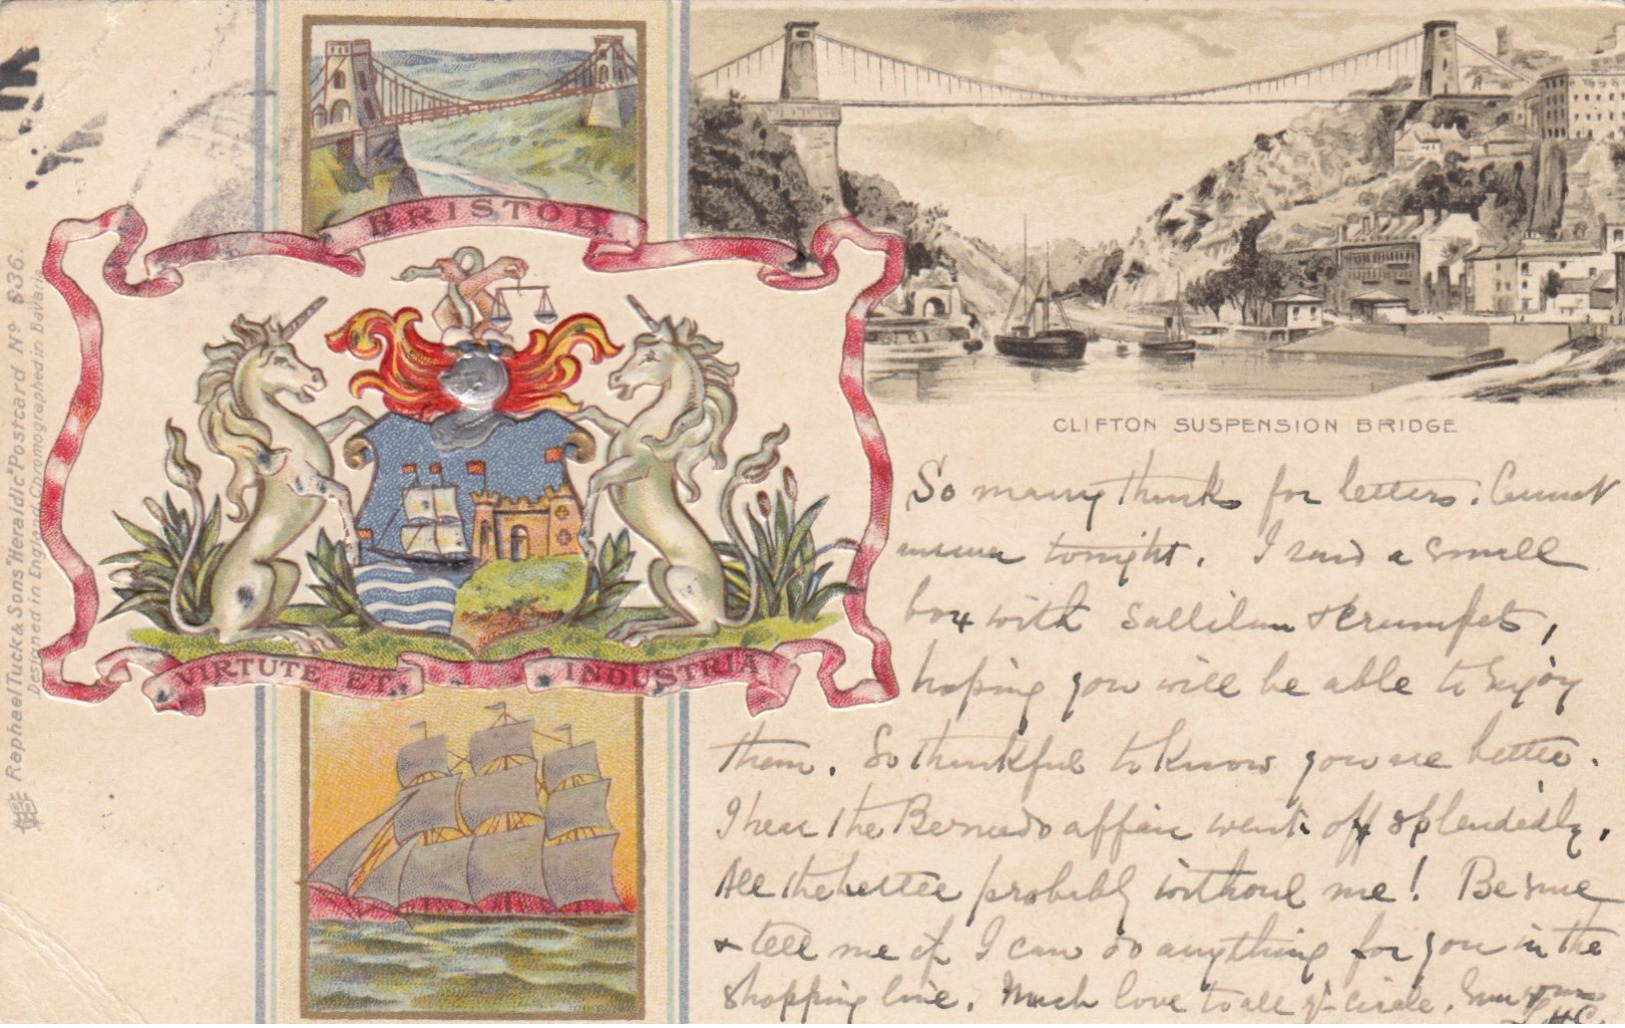 BRISTOL.
VIRTUTE ET INDUSTRIA
Raphael Tuck & Sons' "Heraldic" Postcard Nº 836.
Designed in England Chromographed in Bavaria
CLIFTON SUSPENSION BRIDGE
So many thanks for letters. Cannot
answer tonight. I send a small
box with Sallilun & Crumpets,
hoping you will be able to enjoy
them. So thankful to know you are better.
I hear the affair went off splendidly.
All the better probably without me! Be sure
& tell me if I can do anything for you in the
shopping line. Much love to all yr circle. Ever yours